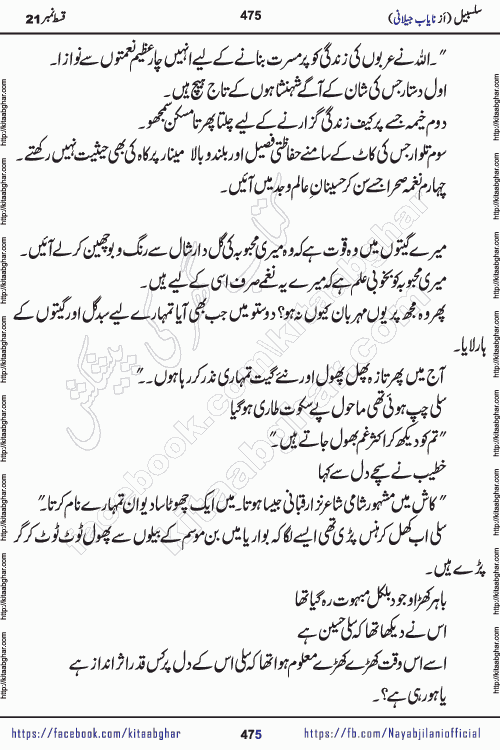 سلسبیل (از نایاب جیلانی) 475 قسط نمبر 21
"۔ اللہ نے عربوں کی زندگی کو پر مسرت بنانے کے لیے انہیں چار عظیم نعمتوں سے نوازا۔
اول دستار جس کی شان کے آگے شہنشاہوں کے تاج ہیچ ہیں۔
دوم خیمہ جسے پر کیف زندگی گزارنے کے لیے چلتا پھرتا مسکن سمجھو۔
سوم تلوار جس کی کاٹ کے سامنے حفاظتی فصیل اور بلند و بالا مینار پر کاہ کی بھی حیثیت نہیں رکھتے۔
چہارم نغمہ صحرا جسے سن کر حسینان عالم وجد میں آئیں۔
میرے گیتوں میں وہ قوت ہے کہ وہ میری محبوبہ کی گل دار شال سے رنگ و بو چھین کر لے آئیں۔
میری محبوبہ کو بخوبی علم ہے کہ میرے یہ نغمے صرف اسی کے لیے ہیں۔
پھر وہ مجھ پر یوں مہربان کیوں نہ ہو؟ دوستو میں جب بھی آیا تمہارے لیے سبد گل اور گیتوں کے
ہار لایا۔
آج میں پھر تازہ پھل پھول اور نئے گیت تمہاری نذر کر رہا ہوں۔۔"
سلی چپ ہوئی تھی ماحول پے سکوت طاری ہو گیا
"تم کو دیکھ کر اکثر غم بھول جاتے ہیں"
خطیب نے سچے دل سے کہا
"کاش میں مشہور شامی شاعر نزار قبانی جیسا ہوتا۔ میں ایک چھوٹا سا دیوان تمہارے نام کرتا۔"
سلی اب کھل کر ہنس پڑی تھی ایسے لگا کہ بواریا میں بن موسم کے بیلوں سے پھول ٹوٹ ٹوٹ کر گر
پڑے ہیں۔
باہر کھڑا وجود بلکل مبہوت رہ گیا تھا
اس نے دیکھا تھا کہ سلی حسین ہے
اسے اس وقت کھڑے کھڑے معلوم ہوا تھا کہ سلی اس کے دل پر کس قدر اثر انداز ہے
یا ہو رہی ہے؟۔
https://facebook.com/kitaabghar 475 https://fb.com/Nayabjilaniofficial